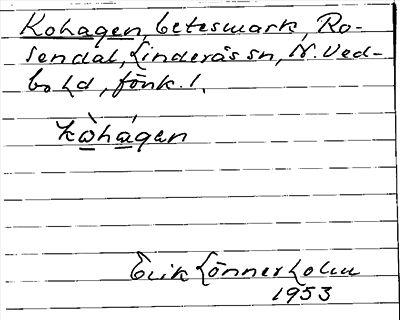 Kohagen, betesmark, Ro-
sendal, Linderås sn, N. Ved-
bo hd, Jönk. l.
kòhágen
Erik Lönnerholm
1953